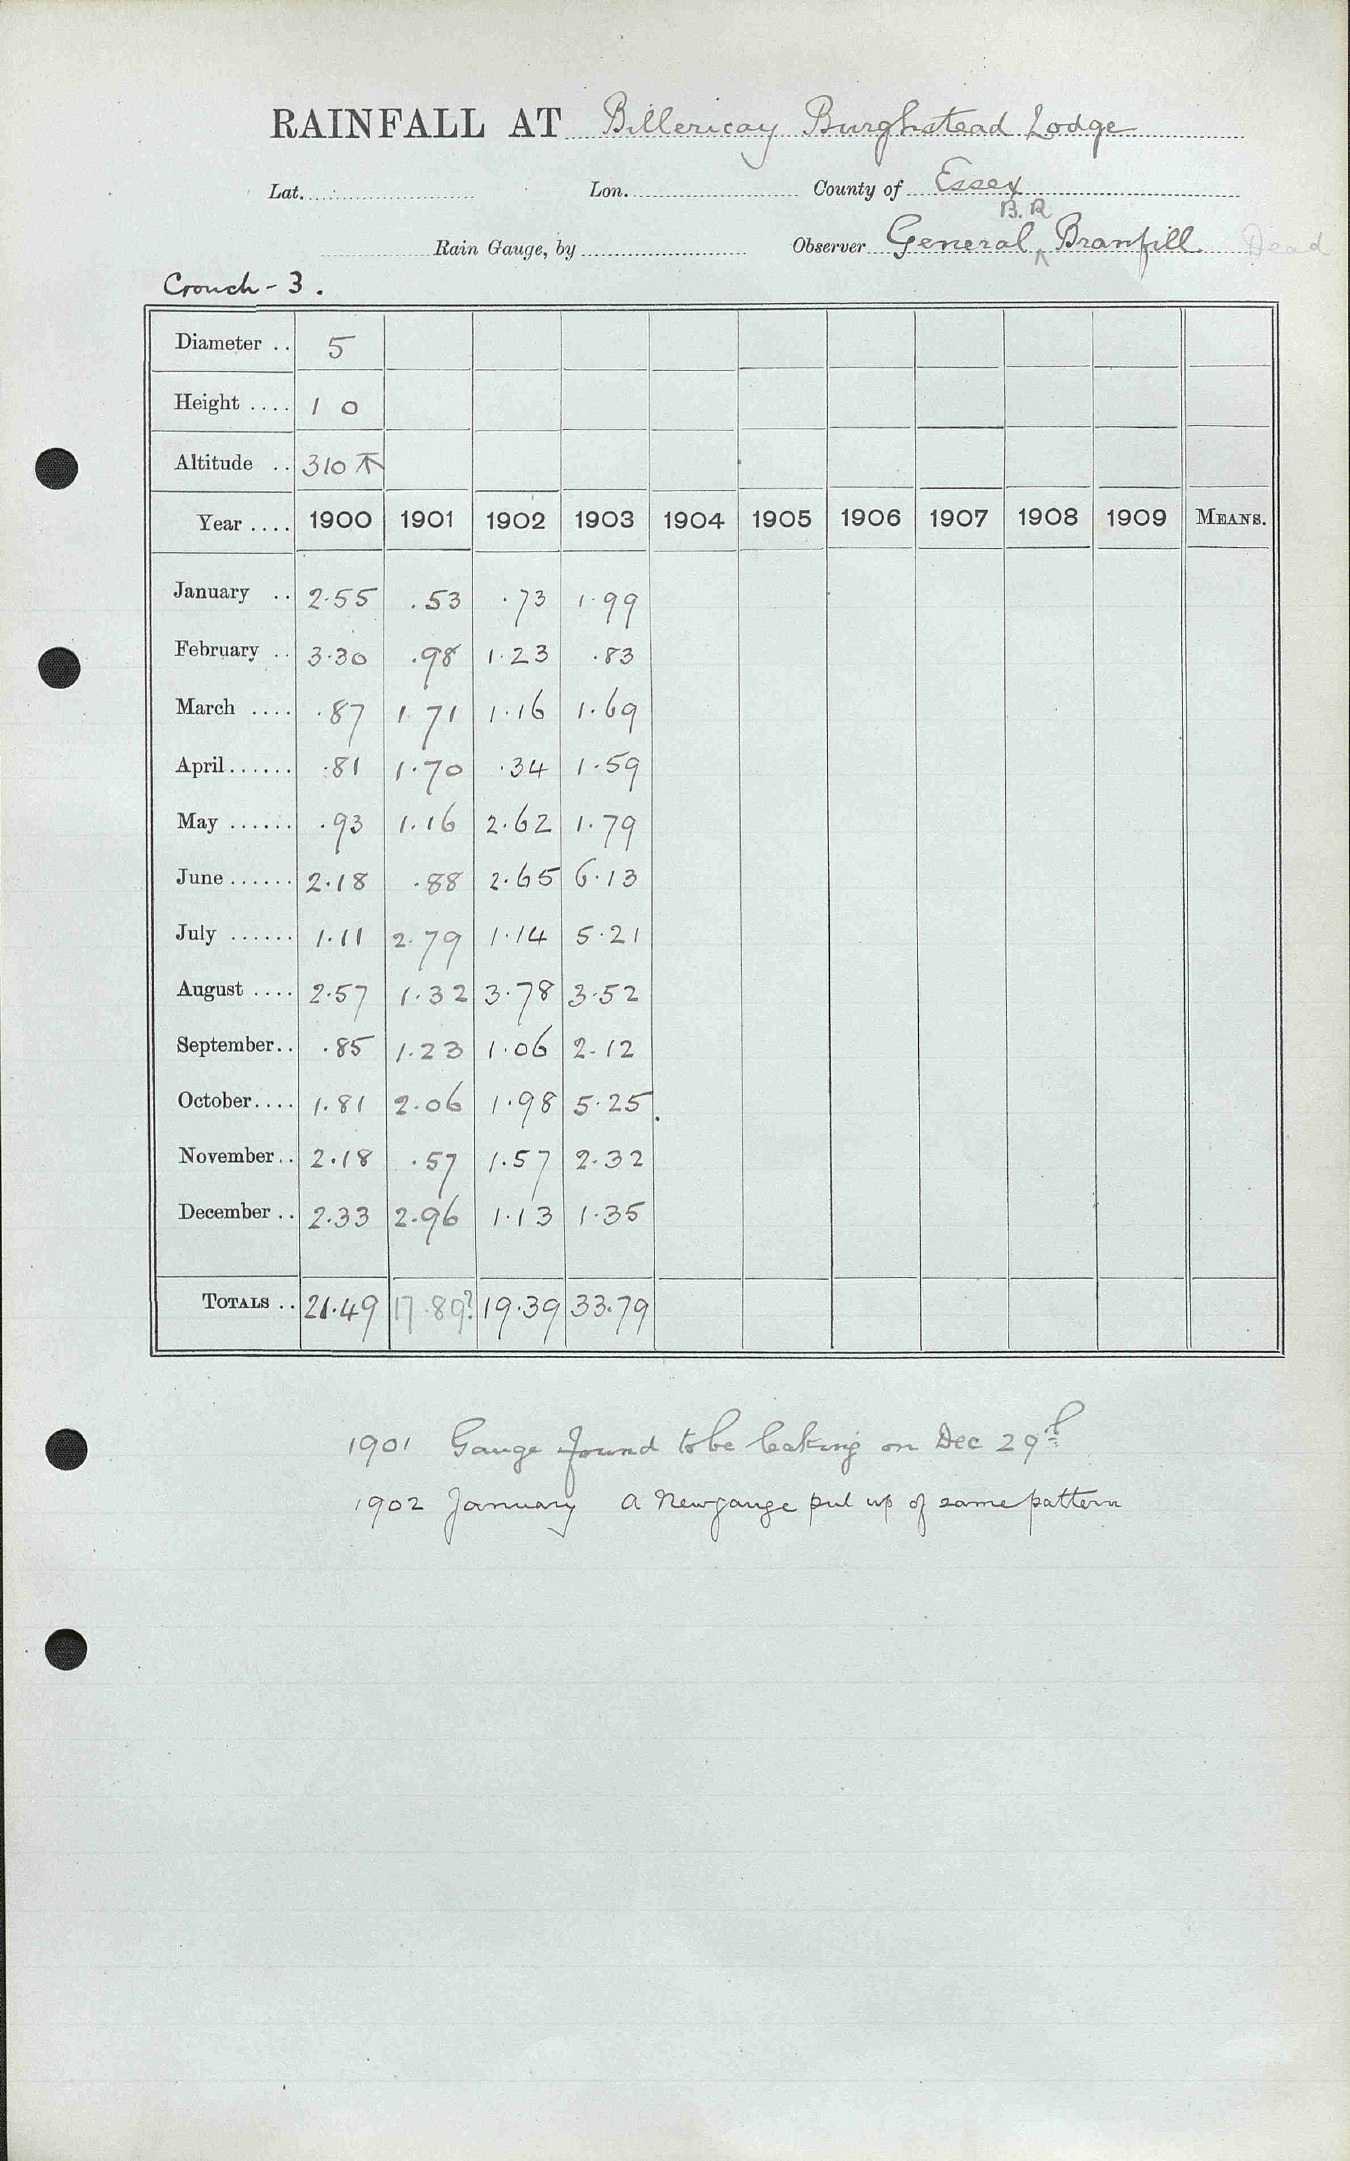 RAINFALL AT Billericay Burghstead Lodge
Lat. Lon. County of Essex
B.R
Rain Gauge, by Observer General ^ Branfill. Dead
Crouch - 3.
Diameter .. 5
Height .... 1 0
Altitude .. 310
Year .... 1900 1901 1902 1903 1904 1905 1906 1907 1908 1909 MEANS.
January .. 2.55 .53 .73 1.99
February .. 3.30 .98 1.23 .83
March .... .87 1.71 1.16 1.69
April...... .81 1.70 .34 1.59
May ...... .93 1.16 2.62 1.79
June...... 2.18 .88 2.65 6.13
July ...... 1.11 2.79 1.14 5.21
August .... 2.57 1.32 3.78 3.52
September.. .85 1.23 1.06 2.12
October.... 1.81 2.06 1.98 5.25
November.. 2.18 .57 1.57 2.32
December .. 2.33 2.96 1.13 1.35
TOTALS .. 21.49 17.89? 19.39 33.79
1901 Gauge found to be leaking on Dec 29th
1902 January A New gauge put up of same pattern